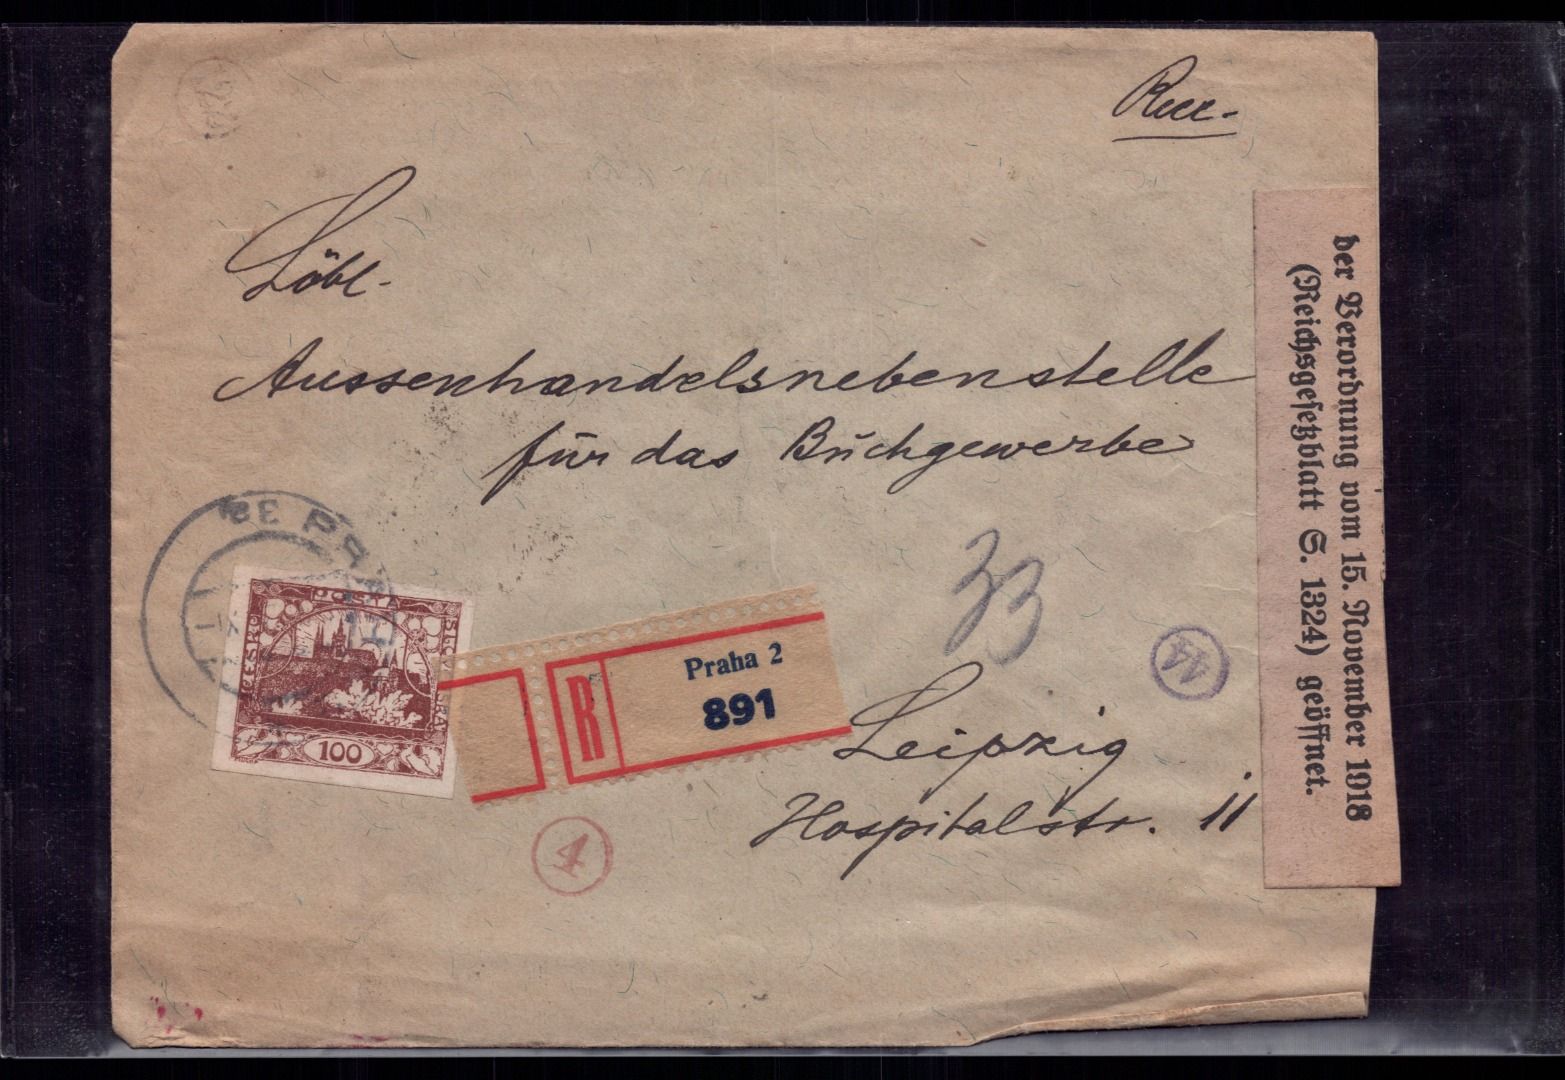 Rec.
Löbl.
Aussenhandelsnebenstelle
für das Buchgewerbe
33
Leipzig
Hospitalstr. 11
R
Praha 2
891
POŠTA
100
4
44
der Verordnung vom 15. November 1918
(Reichsgesetzblatt S. 1324) geöffnet.